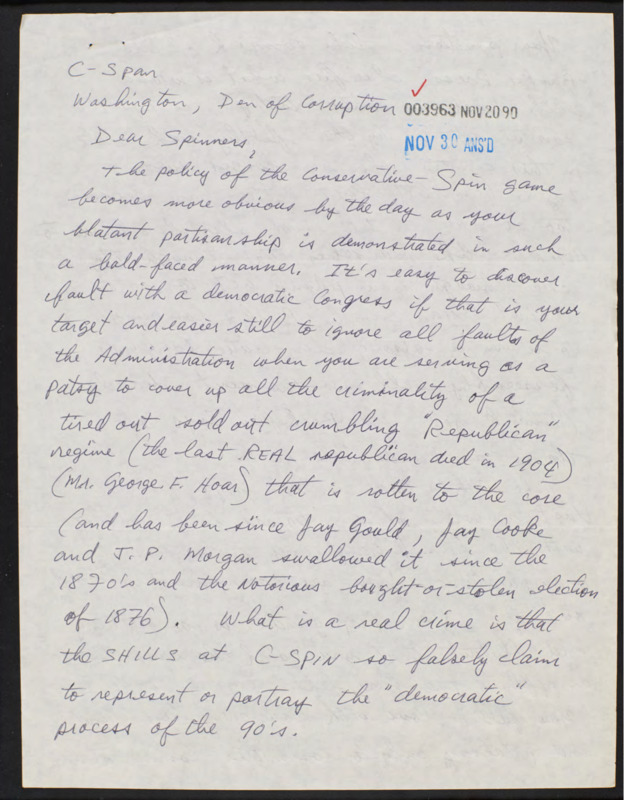 C-Span
Washington, Den of Corruption
003963 NOV 20 90
NOV 30 ANS'D
Dear Spinners,
the policy of the Conservative-Spin game
becomes more obvious by the day as your
blatant partisanship is demonstrated in such
a bald-faced manner. It's easy to discover
fault with a democratic Congress if that is your
target and easier still to ignore all faults of
the Administration when you are serving as a
patsy to cover up all the criminality of a
tired out sold out crumbling "Republican"
regime (the last REAL republican died in 1904)
(Mr. George F. Hoar) that is rotten to the core
(and has been since Jay Gould, Jay Cooke
and J. P. Morgan swallowed it since the
1870's and the Notorious bought-or-stolen election
of 1876). What is a real crime is that
the SHILLS at C-SPIN so falsely claim
to represent or portray the "democratic"
process of the 90's.